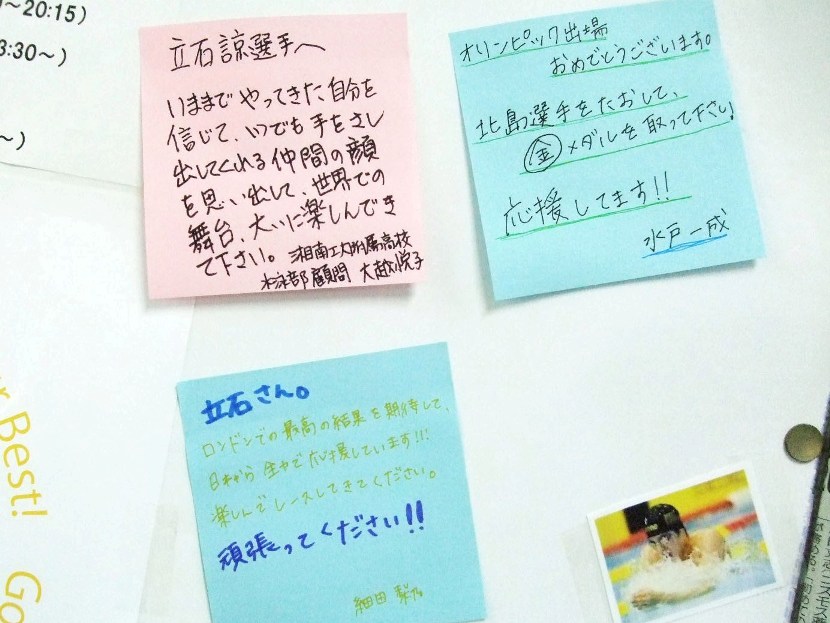 ~20:15)
3:30~)
~)
立石諒選手へ
いままで やってきた自分を
信じて、いつでも 手をさし
出してくれる 仲間の顔
を思い出して、世界での
舞台、大いに楽しんでき
て下さい。湘南工大附属高校
水泳部顧問 大越悦子
オリンピック出場
おめでとうございます。
北島選手をたおして、
金メダルを取って下さい!
応援してます!!
水戸一成
立石さん。
ロンドンでの最高の結果を期待して、
日本から 全力で応援しています!!!
楽しんでレースしてきてください。
頑張ってください!!
細田
Best!
Go